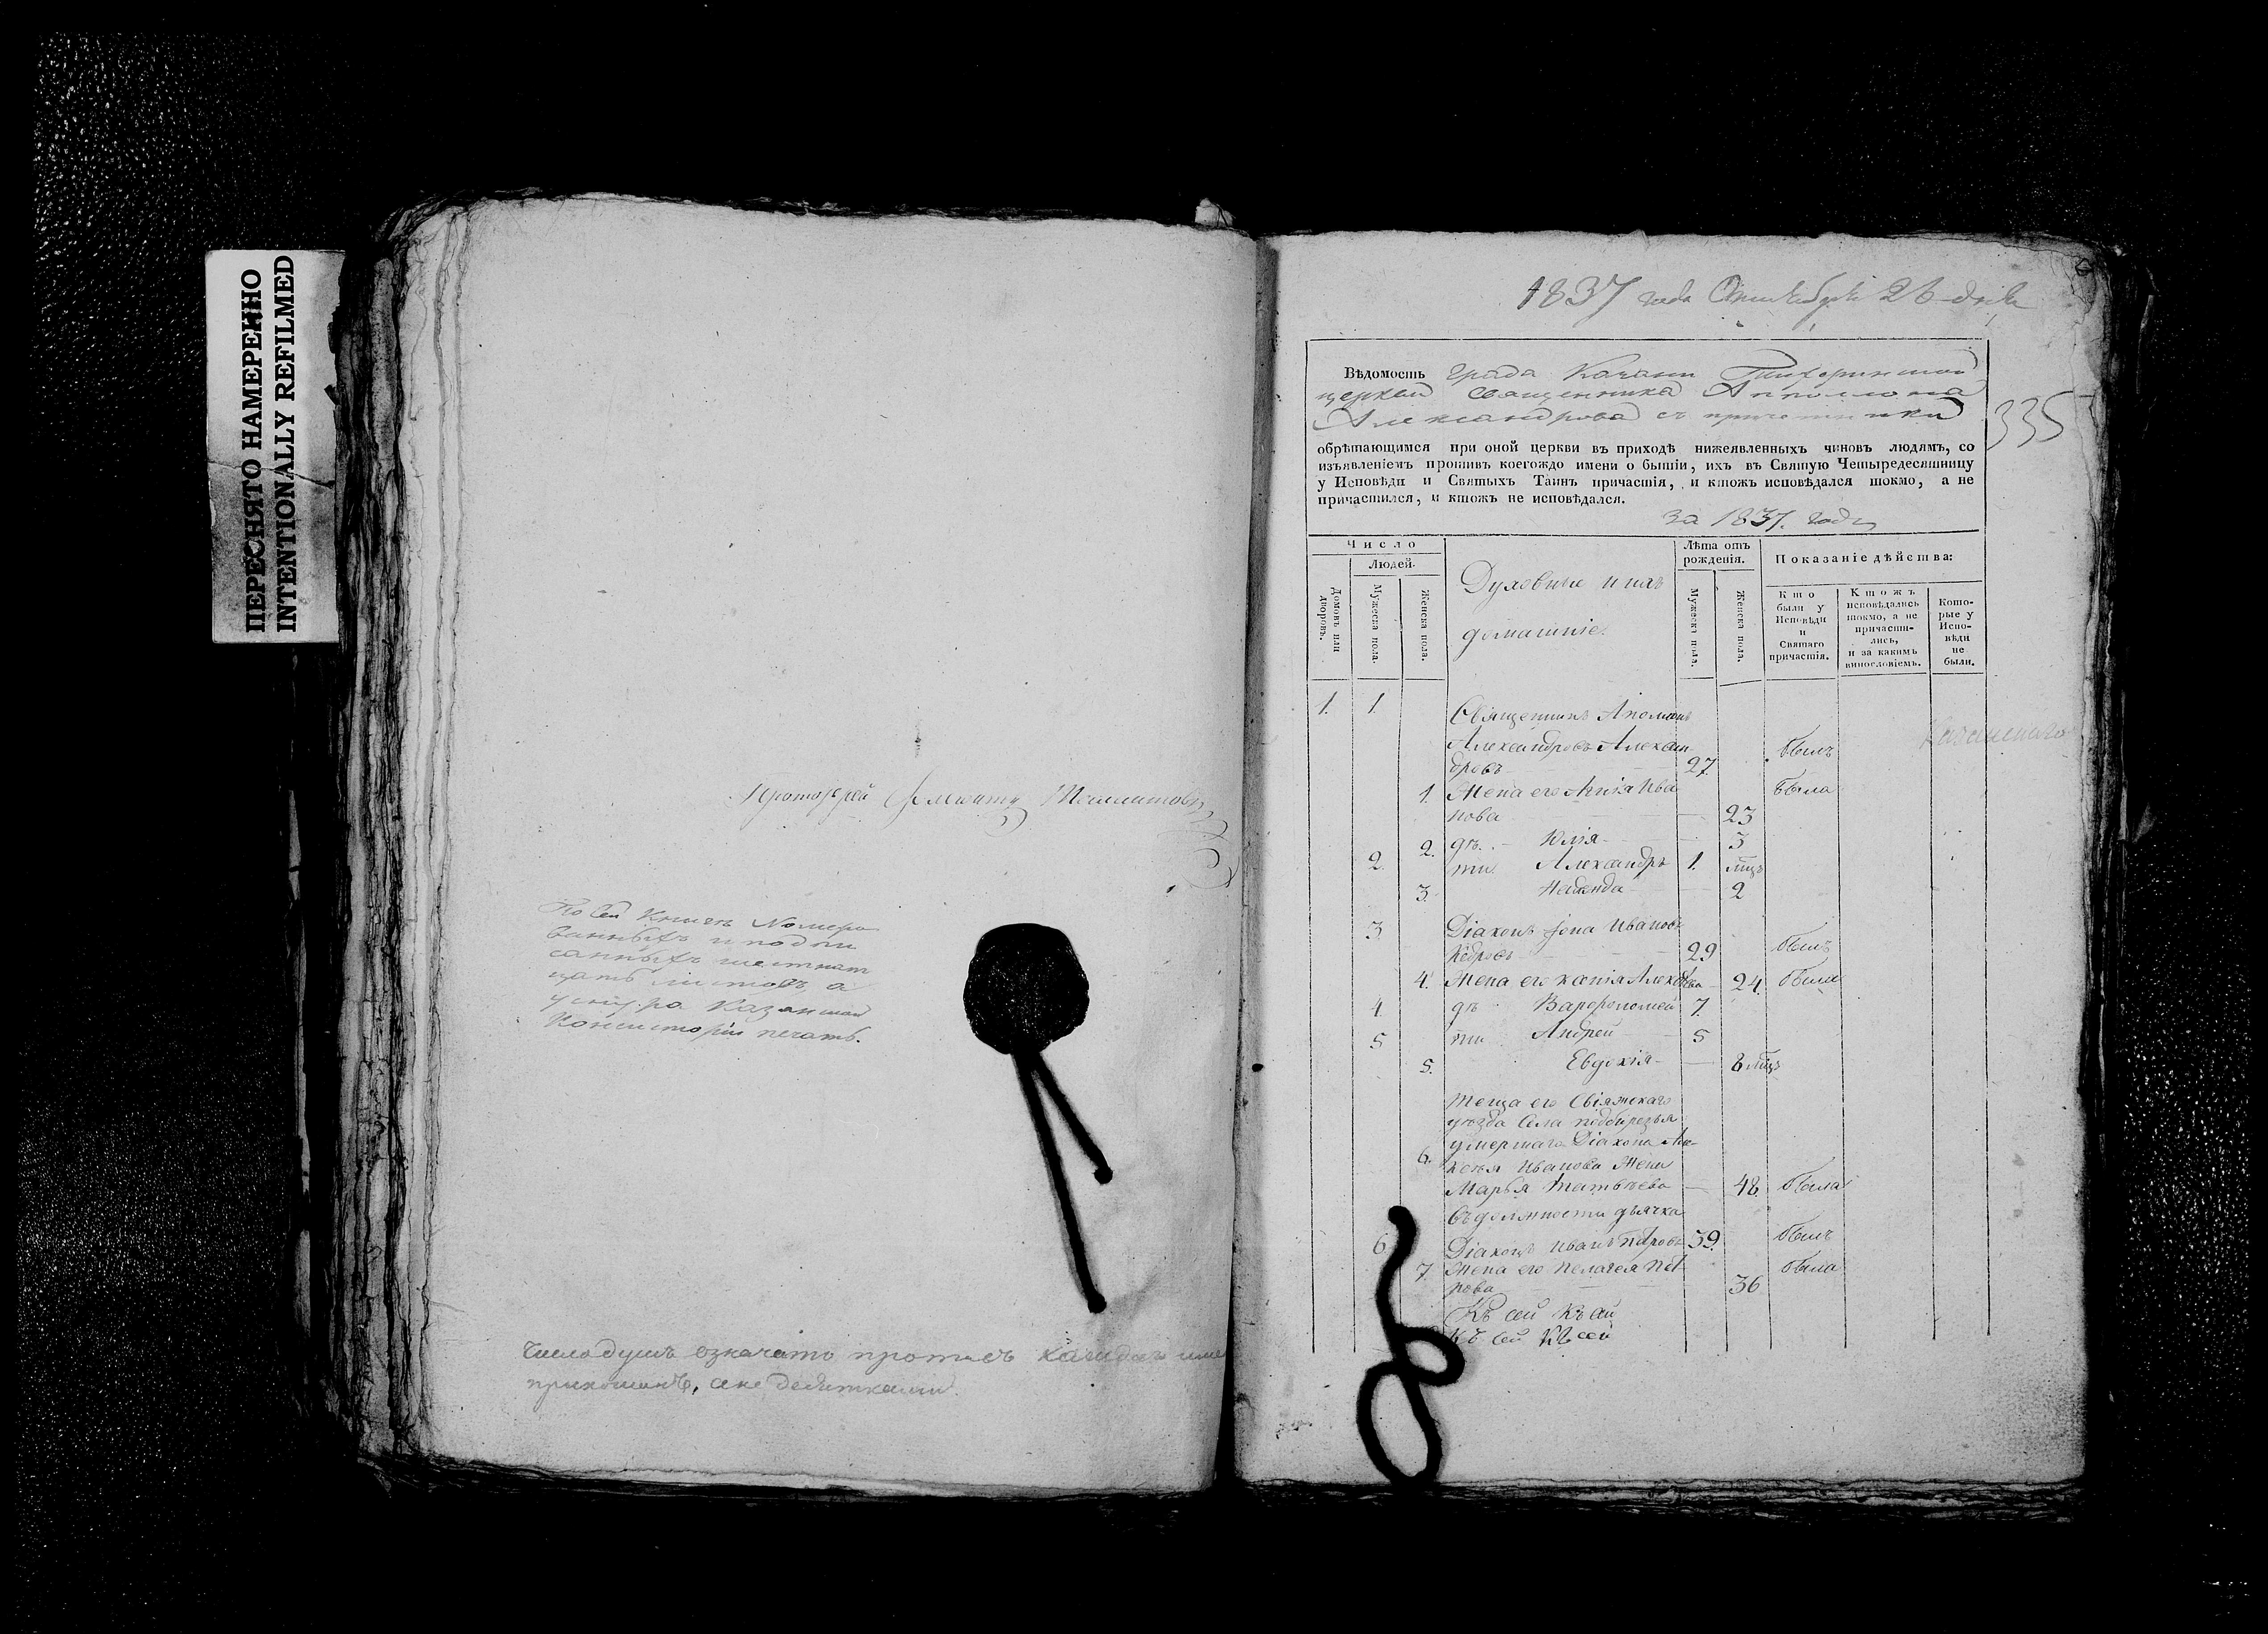 ПЕРЕСНЯТО НАМЕРЕННО
INTENTIONALLY REFILMED
Протоіерей
По сей книгѣ номеро
ванныхъ и подпи
санныхъ шестнат
цать листовъ, а
у шнура Казанской
Консисторіи печать.
Число душъ означать противъ каждаго
прихожанъ, а не десятками.
1837 года Октября 26 дня
335
Вѣдомость града Казани Тихвинской
церкви священника Апполлона
Александрова съ причетники
обрѣтающимся при оной церкви въ приходѣ нижеявленныхъ чиновъ людямъ, со
изъявленіемъ противъ коегождо имени о бытіи, ихъ въ Святую Четыредесятницу
у Исповѣди и Святыхъ Таинъ причастія, и ктожъ исповѣдался токмо, а не
причастился, и ктожъ не исповѣдался.
за 1837. годъ
Число
Людей.
Домовъ или дворовъ.
Мужеска пола.
Женска пола.
Духовные и ихъ
домашніе.
Лѣта отъ рожденія.
Мужеска пола.
Женска пола.
Показаніе дѣйства:
Кто были у Исповѣди и Святаго причастія.
Ктожъ исповѣдались токмо, а не причасти-лись, и за какимъ винословіемъ.
Кото-рые у Испо-вѣди не были.
1. 1. Священникъ Аполлонъ
Александровъ Алексан
дровъ 27. былъ
Казанскаго
1. Жена его Анна Ива была
нова 23
2. дѣ. Юлія 3
2. ти. Александръ 1. мцъ
3. Надежда 2
3. Діаконъ Іона Ивановъ
Кедровъ 29 былъ
4. Жена его 24. была
4. дѣ Варфоломей 7.
5 ти Андрей 5
5. Евдокія 8 мцъ
Теща его Свіяжскаго
уѣзда села Подберезья
умершаго Діакона Але-
6. ксѣя Иванова жена
Марья Матвѣева 48. была
Въ должности дьячка
6. Діаконъ Иванъ Петровъ 59. былъ
7. Жена его Пелагея Пет была
рова 36
Къ сей Къ сей
Къ сей Къ сей